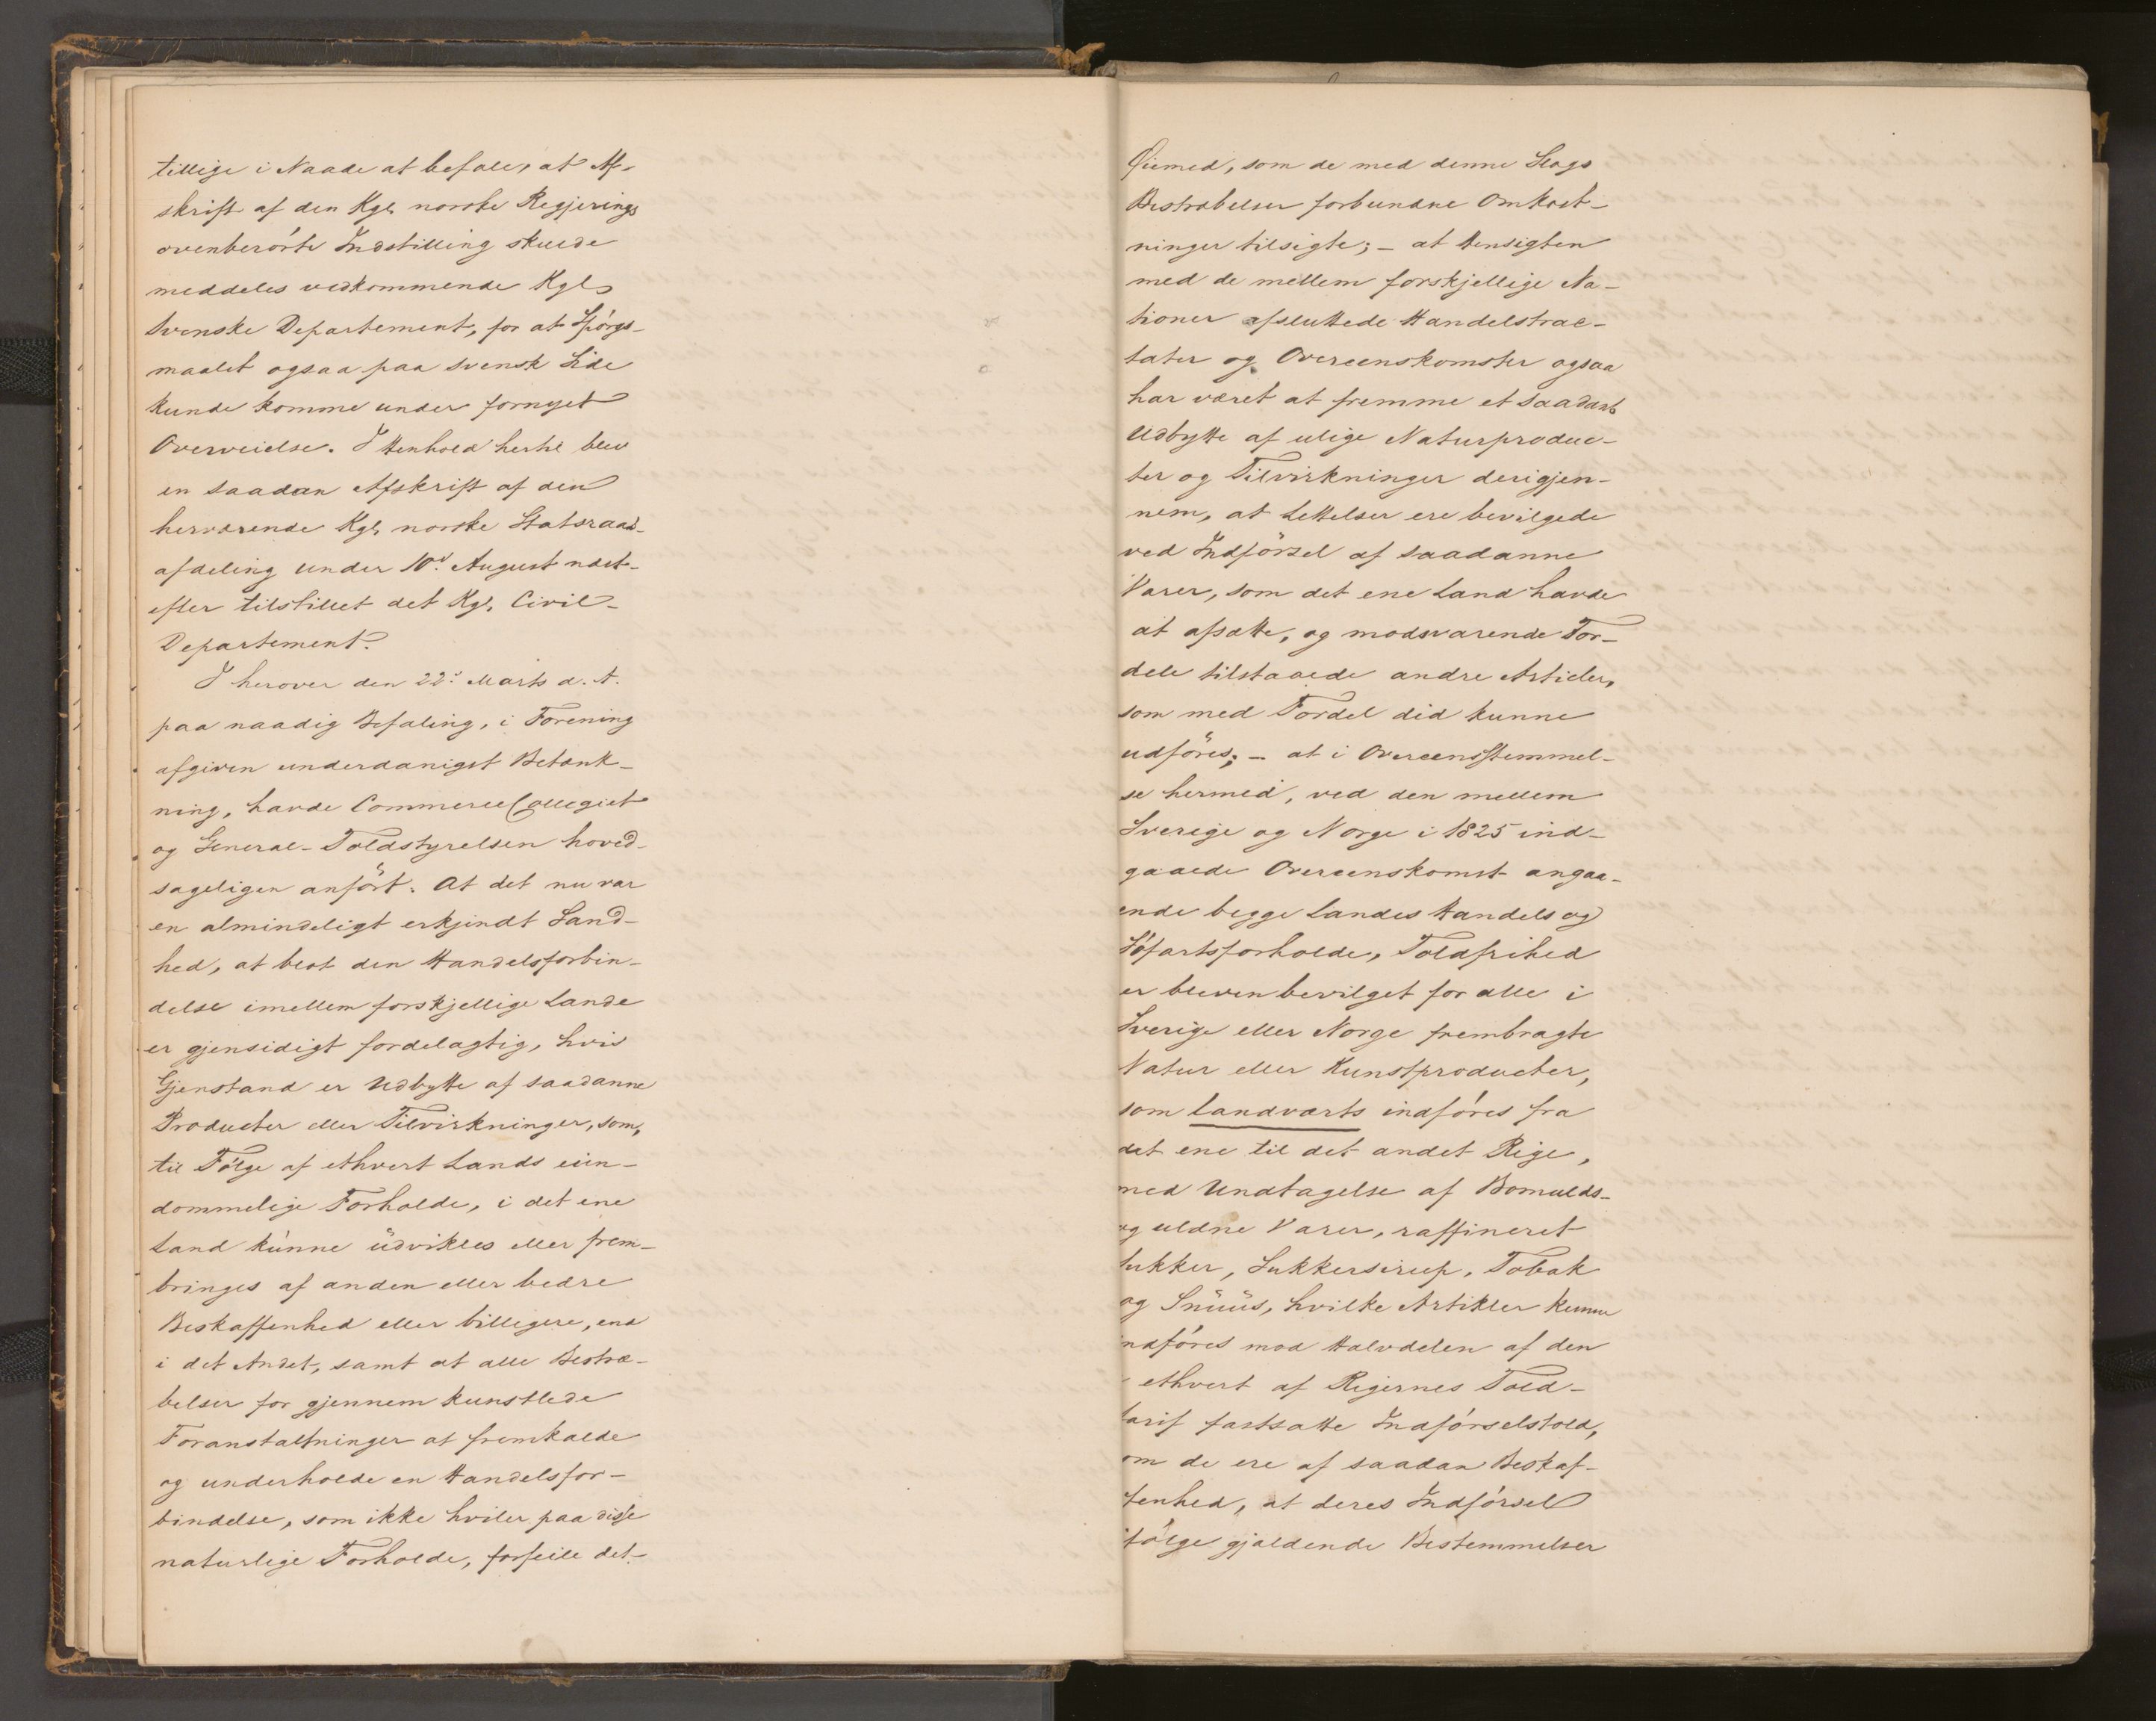 tillige i Naade at befale, at Af-
skrift af den Kgl. norske Regjerings
ovenberörte Indstilling skulde
meddeles vedkommende Kgl.
Svenske Departement, for at Spörgs-
maalet ogsaa paa svensk Side
kunde komme under fornyet
Overveielse. I Henhold hertil blev
en saadan Afskrift af den
herværende Kgl. norske Statsraad-
afdeling under 10d. August næst-
efter tilstillet det Kgl. Civil-
Departement.
I herover den 22d. Marts d. A.
paa naadig Befaling, i Forening
afgiven underdanigst Betænk-
ning, havde CommerceCollegiet
og General-Toldstyrelsen hoved-
sageligen anfört. At det nu var
en almindeligt erkjendt Sand-
hed, at blot den Handelsforbin-
delse imellem forskjellige Lande
er gjensidigt fordelagtig, hvis
Gjenstand er Udbytte af saadanne
Producter eller Tilvirkninger, som,
til Fölge af ethvert Lands eien-
dommelige Forholde, i det ene
Land kunne udvikles eller frem-
bringes af anden eller bedre
Beskaffenhed eller billigere, end
i det Andet, samt at alle Bestræ-
belser for gjennem kunstlede
Foranstaltninger at fremkalde
og underholde en Handelsfor-
bindelse, som ikke hviler paa disse
naturlige Forholde, forfeile det
Øiemed, som de med denne Slags
Bestræbelser forbundne Omkost-
ninger tilsigte; - at Hensigten
med de mellem forskjellige Na-
tioner afsluttede Handelstrac-
tater og Overeenskomster ogsaa
har været at fremme et saadant
Udbytte af ulige Naturproduc-
ter og Tilvirkninger derigjen-
nem, at Lettelser ere bevilgede
ved Indförsel af saadanne
Varer, som det ene Land havde
at afsætte, og modsvarende For-
dele tilstaaede andre Articler,
som med Fordel did kunne
udföres; - at i Overeensstemmel-
se hermed, ved den mellem
Sverige og Norge i 1825 ind-
gaaede Overeenskomst angaa-
ende begge Landes Handels og
Söfartsforholde, Toldfrihed
er bleven bevilget for alle i
Sverige eller Norge frembragte
Natur eller Kunstproducter,
som landværts indföres fra
det ene til det andet Rige,
med Undtagelse af Bomulds-
og uldne Varer, raffineret
Sukker, Sukkersirup, Tobak
og Snuus, hvilke Artikler kunne
indföres mod Halvdelen af den
i ethvert af Rigernes Told-
tarif fastsatte Indförselstold,
om de ere af saadan Beskaf-
fenhed, at deres Indförsel
ifölge gjældende Bestemmelser